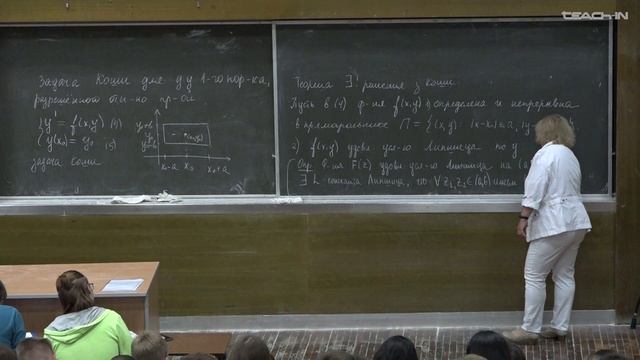 Задача Коши для ду 1-го пор-ка,
разрешённого
{y' = f(x,y) (4)
{y(x₀) = y₀ (5)
задача Коши
y+b
y-b
(x₀,y₀)
x₀-a x₀ x₀+a
Теорема ∃! решения з Коши.
Пусть в (4) ф-ия f(x,y) 1) определена и непрерывна
в прямоугольнике П = {(x,y): |x-x₀| ≤ a, |y
2) f(x,y) удовл усл-ю Липшица по y
Опр Ф-ия F(z) удовл усл-ю Липшица на (a
∃ L константа Липшица, что ∀ z₁, z₂ ∈ (a,b)
TEACH-IN